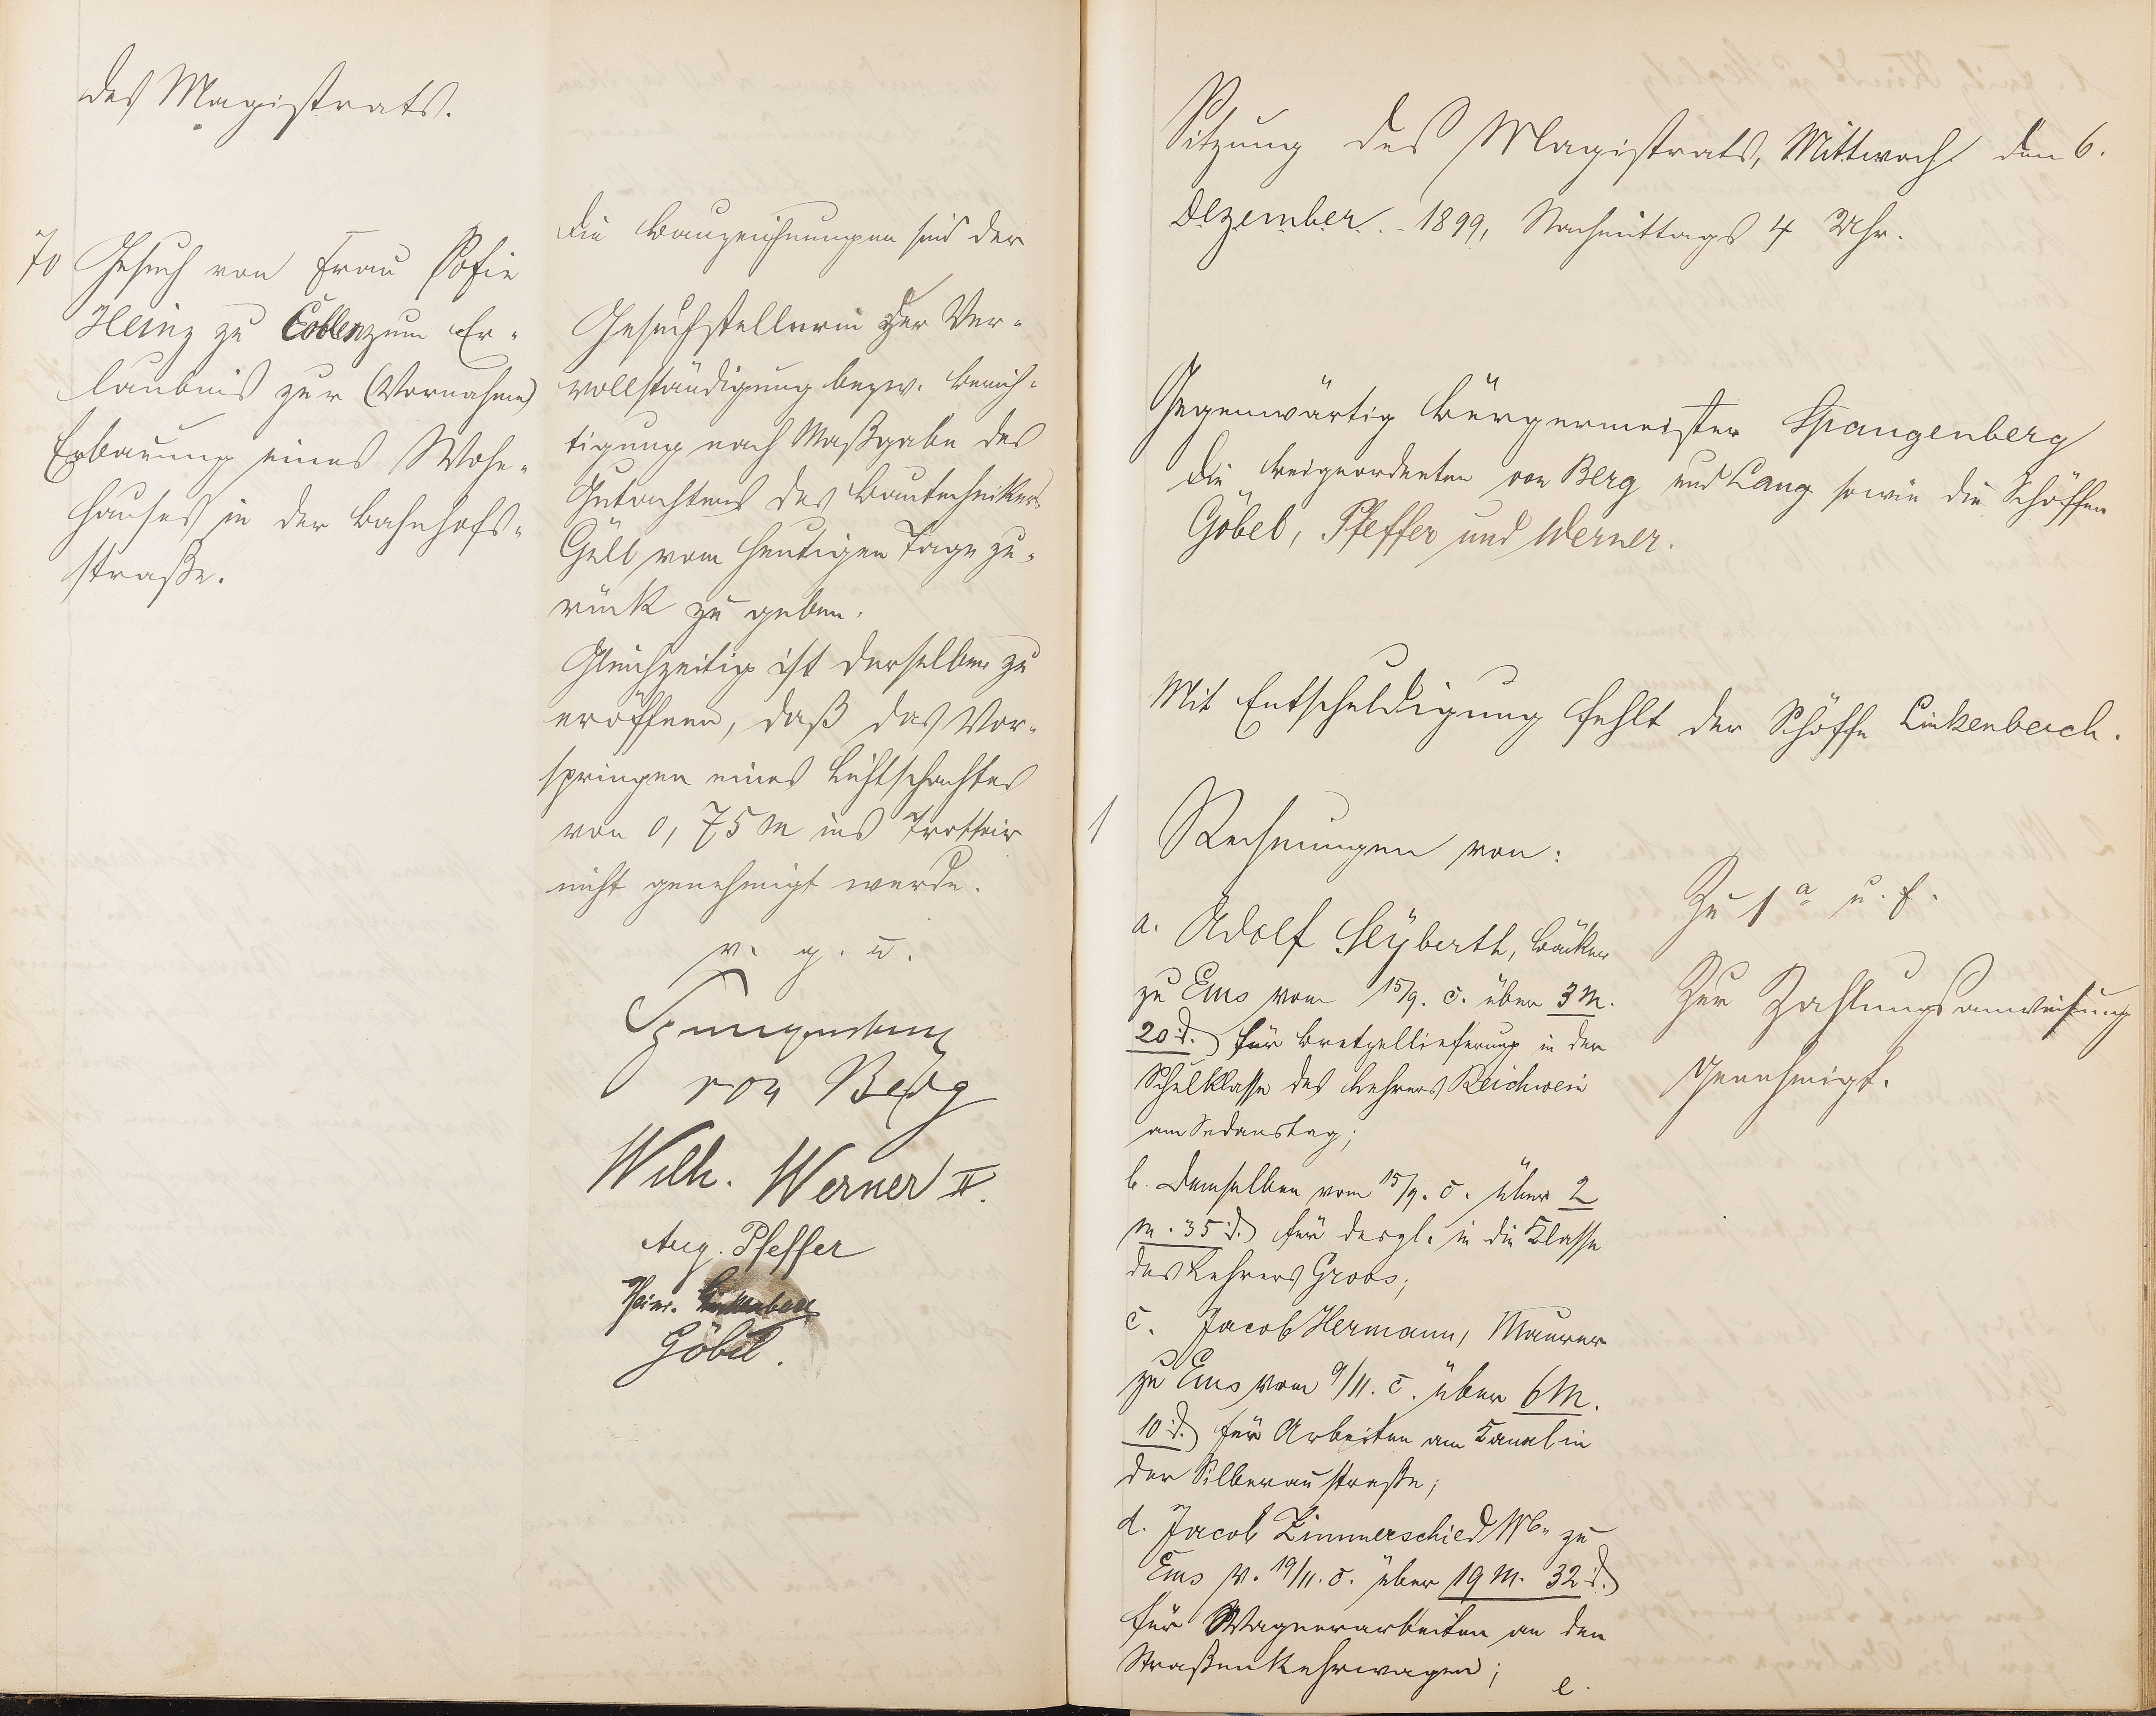 des Magistrats.
70 Gesuch von Frau Sofie
Heinz zu Coblenz um Er-
laubnis zur (Vornahme)
Erbauung eines Wohn-
hauses in der Bahnhof-
straße.
Die Bauzeichnungen sind der
Gesuchstellerin der Ver-
vollständigung bezw. Berich-
tigung nach Maßgabe des
Gutachtens des Bautechnikers
Gült vom heutigen Tage zu-
rück zu geben.
Gleichzeitig ist derselben zu
eröffnen, daß das Vor-
springen eines Lichtschachtes
von 0,75 m ins Trottoir
nicht genehmigt werde.
v. g. u.
Spangenberg
von Berg
Wilh. Werner II.
Aug. Pfeffer
Heinr. Linkenbach
Göbel.
Sitzung des Magistrats, Mittwoch den 6.
Dezember 1899, Nachmittags 4 Uhr.
Gegenwärtig Bürgermeister Spangenberg
die Beigeordneten von Berg und Lang sowie die Schöffen
Göbel, Pfeffer und Werner.
Mit Entschuldigung fehlt der Schöffe Linkenbach.
1 Rechnungen von:
a. Adolf Seyberth, Bäcker
zu Ems vom 15/9. c. über 3 M.
20 d. für Bretzellieferung in der
Schulklasse des Lehrers Reichwein
am Sedanstag;
b. Demselben vom 15/9. c. über 2
M. 35 d. für desgl. in die Klasse
des Lehrers Groos;
c. Jacob Hermann, Maurer
zu Ems vom 9/11. c. über 6 M.
10 d. für Arbeiten am Kanal in
der Silberaustraße;
d. Jacob Zimmerschied Wb. zu
Ems v. 19/11. c. über 19 M. 32 d.
für Wagnerarbeiten an den
Straßenkehrwagen;
e.
Zu 1 a u. f.
Zur Zahlungsanweisung
genehmigt.